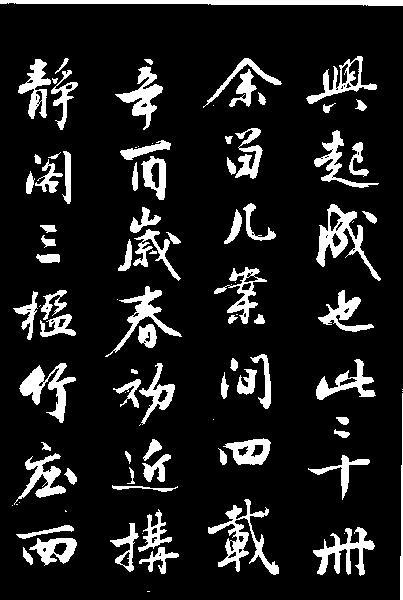 興起成也此二十冊
余留几案間四載
辛酉歲春初近搆
靜閣三楹竹庄西